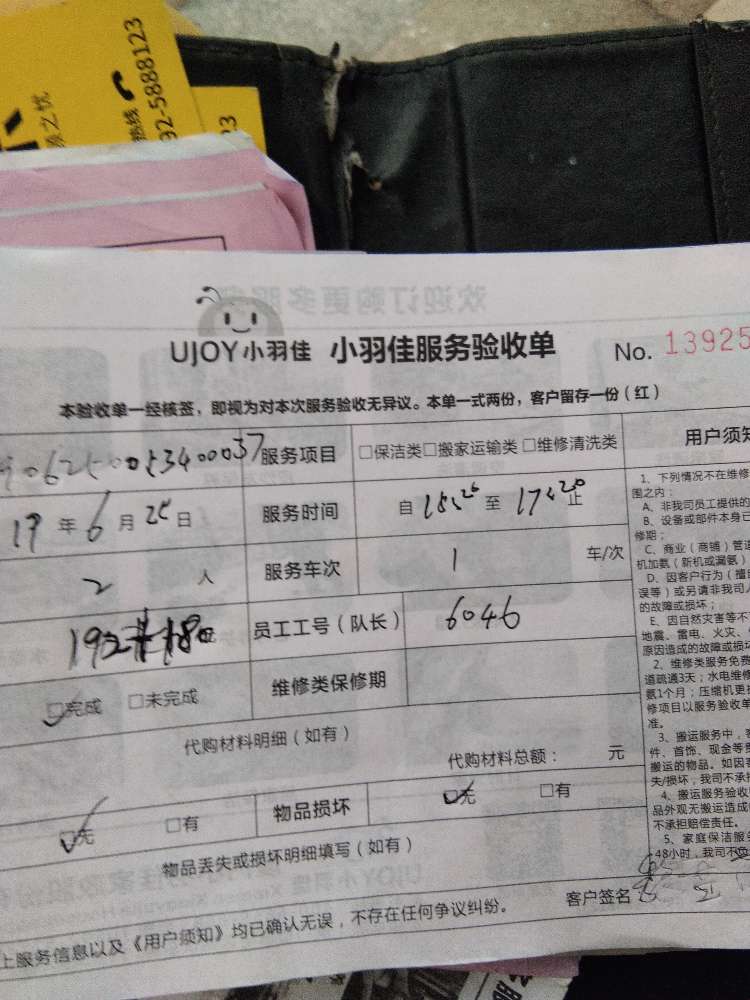 热线
92-5888123
之忧
23
欢迎订购更多服
UJOY小羽佳 小羽佳服务验收单 No. 13925
本验收单一经核签，即视为对本次服务验收无异议。本单一式两份，客户留存一份（红）
服务项目 □保洁类□搬家运输类□维修清洗类 用户须知
19年6月25日 服务时间 自 至 止
2人 服务车次 1 车/次
员工工号（队长） 6046
□完成 □未完成 维修类保修期
代购材料明细（如有） 代购材料总额： 元
□无 □有 物品损坏 □无 □有
物品丢失或损坏明细填写（如有）
客户签名
上服务信息以及《用户须知》均已确认无误，不存在任何争议纠纷。
1、下列情况不在维修
围之内：
A、非我司员工提供的
B、设备或部件本身已
修期；
C、商业（商铺）管道
机加氨（新机或漏氨）
D、因客户行为（擅
误等）或另请非我司人
的故障或损坏；
E、因自然灾害等不
地震、雷电、火灾、
原因造成的故障或损坏
2、维修类服务免费
道疏通3天；水电维修
氨1个月；压缩机更换
修项目以服务验收单
准。
3、搬运服务中，客
件、首饰、现金等贵
搬运的物品。如因客
失/损坏，我司不承担
4、搬运服务验收
品外观无搬运造成
不承担赔偿责任。
5、家庭保洁服务
48小时，我司不负